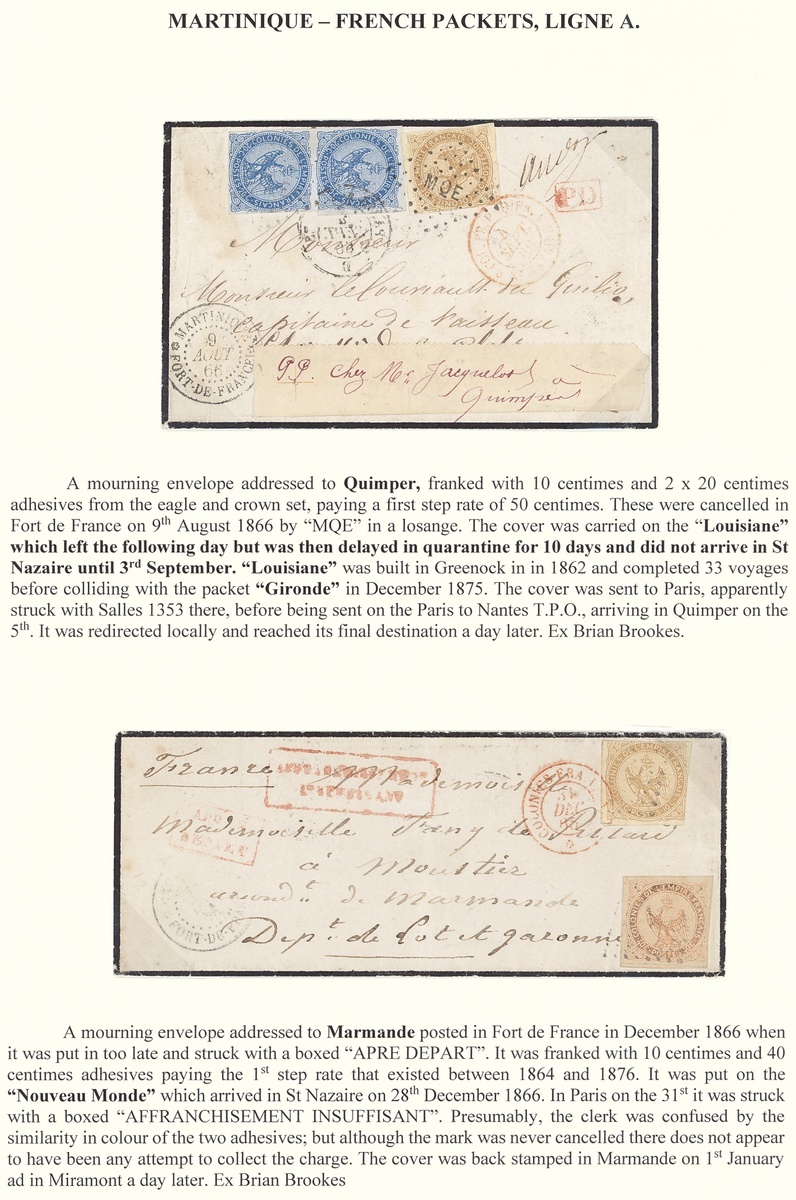 MARTINIQUE – FRENCH PACKETS, LIGNE A.
COLONIES DE L'EMPIRE FRANÇAIS
COLONIES DE L'EMPIRE FRANÇAIS
MQE
PD
Monsieur
Monsieur
Capitaine de Vaisseau
MARTINIQUE
9
AOUT
66
FORT-DE-FRANCE
P.P. chez Mr Jacquelot à
Quimper
A mourning envelope addressed to Quimper, franked with 10 centimes and 2 x 20 centimes
adhesives from the eagle and crown set, paying a first step rate of 50 centimes. These were cancelled in
Fort de France on 9th August 1866 by “MQE” in a losange. The cover was carried on the “Louisiane”
which left the following day but was then delayed in quarantine for 10 days and did not arrive in St
Nazaire until 3rd September. “Louisiane” was built in Greenock in in 1862 and completed 33 voyages
before colliding with the packet “Gironde” in December 1875. The cover was sent to Paris, apparently
struck with Salles 1353 there, before being sent on the Paris to Nantes T.P.O., arriving in Quimper on the
5th. It was redirected locally and reached its final destination a day later. Ex Brian Brookes.
France Mademoiselle
COLONIES FRA
31
DEC
Mademoiselle Fany de
à Moustier
arrondt. de Marmande
FORT-DE-F
Dept. de Lot et garonne
COLONIES DE L'EMPIRE FRANÇAIS
A mourning envelope addressed to Marmande posted in Fort de France in December 1866 when
it was put in too late and struck with a boxed “APRE DEPART”. It was franked with 10 centimes and 40
centimes adhesives paying the 1st step rate that existed between 1864 and 1876. It was put on the
“Nouveau Monde” which arrived in St Nazaire on 28th December 1866. In Paris on the 31st it was struck
with a boxed “AFFRANCHISEMENT INSUFFISANT”. Presumably, the clerk was confused by the
similarity in colour of the two adhesives; but although the mark was never cancelled there does not appear
to have been any attempt to collect the charge. The cover was back stamped in Marmande on 1st January
ad in Miramont a day later. Ex Brian Brookes